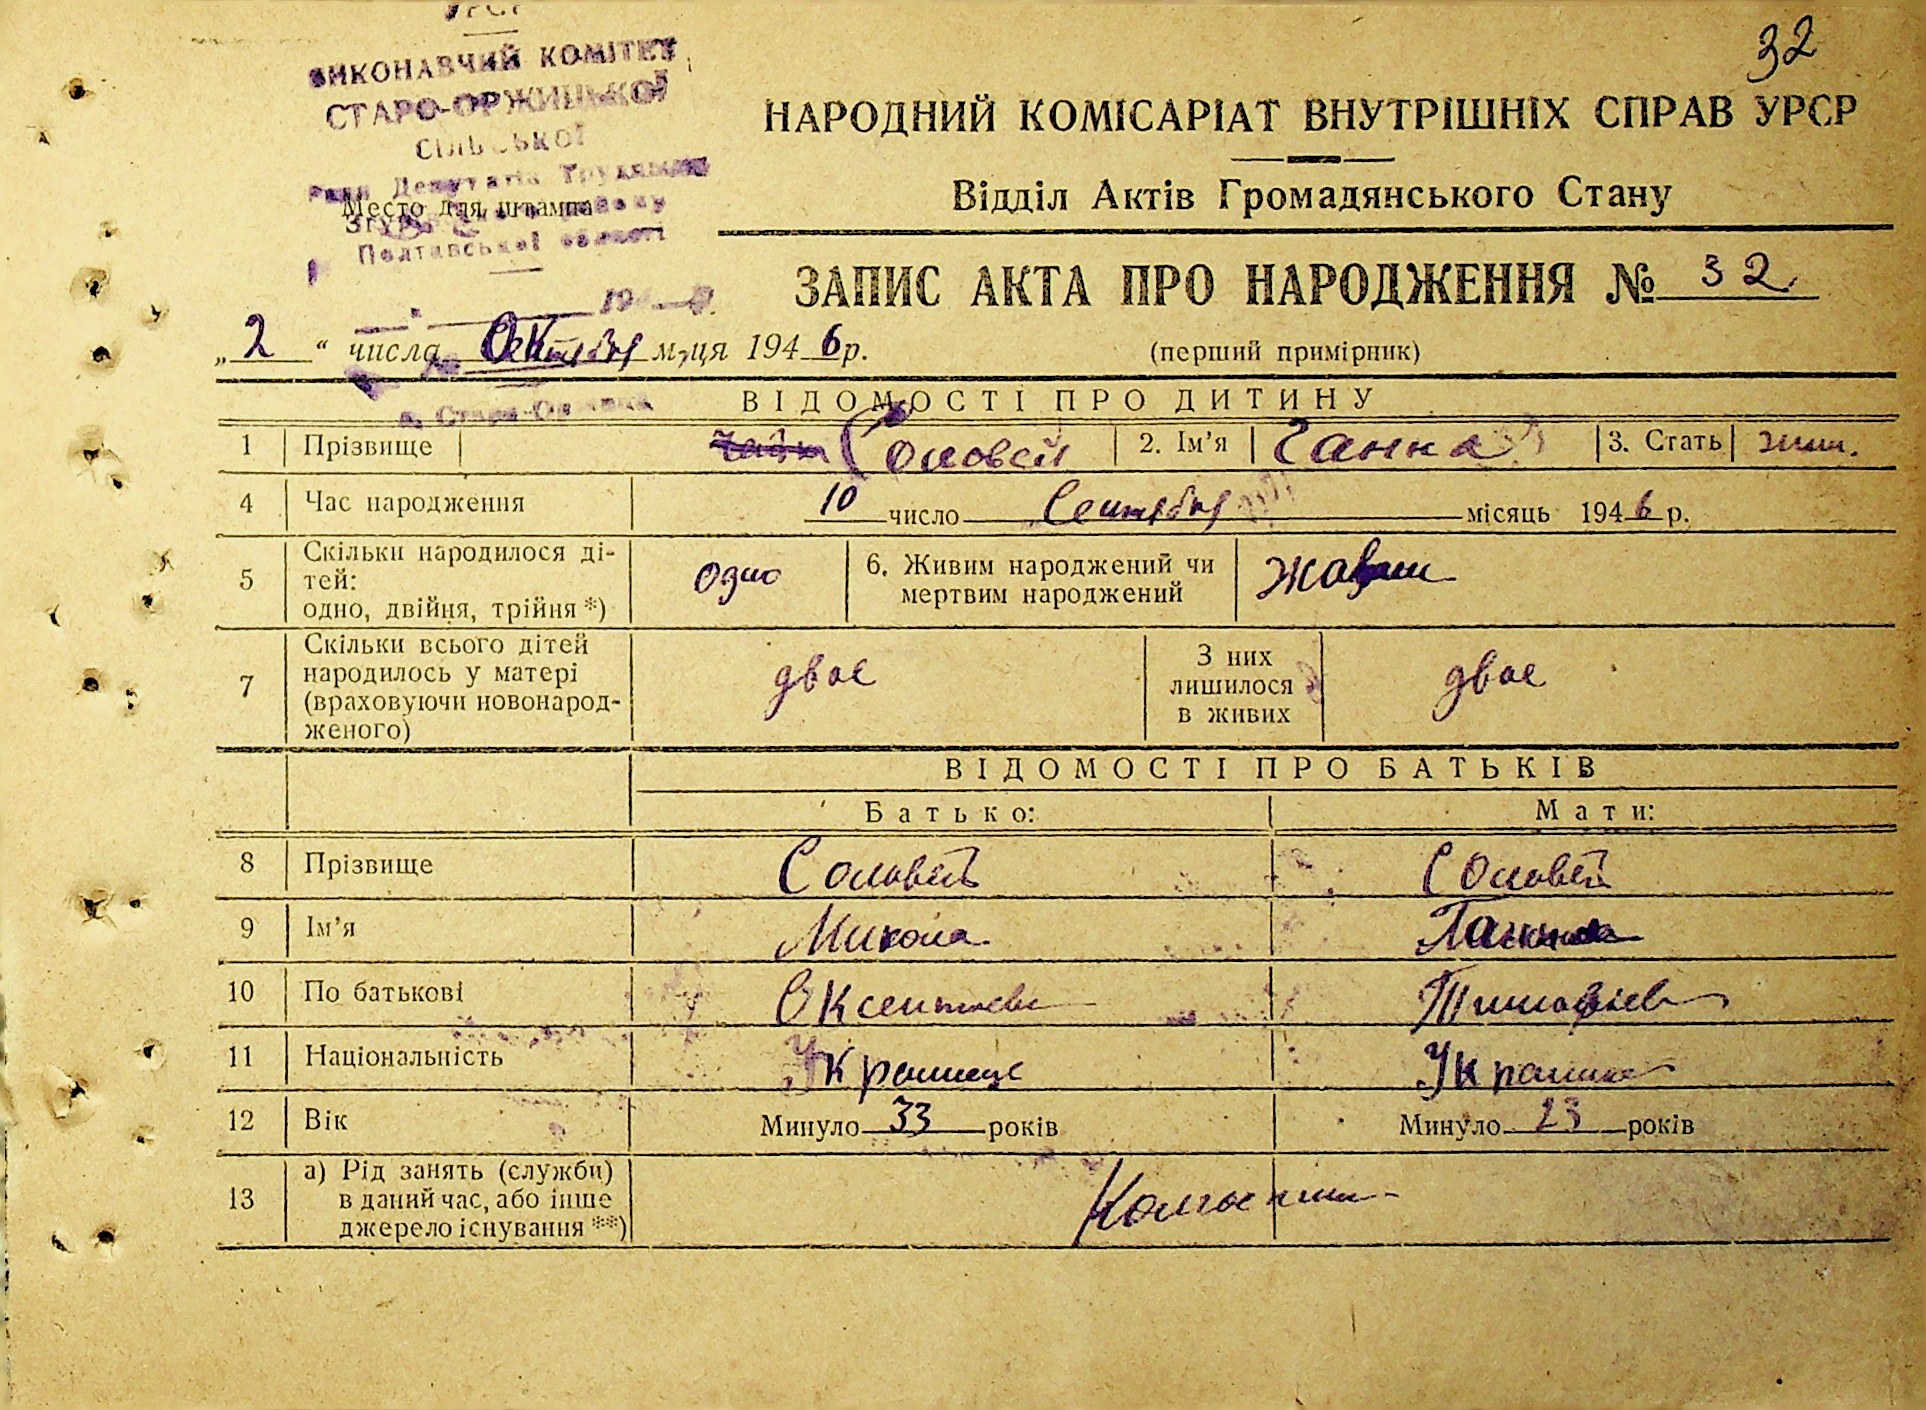 32
УРСР
ВИКОНАВЧИЙ КОМІТЕТ
СТАРО-ОРЖИЦЬКОЇ
СІЛЬСЬКОЇ
Ради Депутатів Трудящих
Место для штампа
Полтавської області
НАРОДНИЙ КОМІСАРІАТ ВНУТРІШНІХ СПРАВ УРСР
Відділ Актів Громадянського Стану
ЗАПИС АКТА ПРО НАРОДЖЕННЯ № 32
„ 2 “ числа Октября м-ця 1946 р.
(перший примірник)
ВІДОМОСТІ ПРО ДИТИНУ
1 Прізвище Соловей 2. Ім’я Ганна 3. Стать жен.
4 Час народження 10 число Сентября місяць 1946 р.
5 Скільки народилося ді-
тей:
одно, двійня, трійня *) одно
6. Живим народжений чи
мертвим народжений
7 Скільки всього дітей
народилось у матері
(враховуючи новонарод-
женого) двоє
З них
лишилося
в живих двоє
ВІДОМОСТІ ПРО БАТЬКІВ
Батько: Мати:
8 Прізвище Соловей Соловей
9 Ім’я Микола
10 По батькові
11 Національність Украинец
12 Вік Минуло 33 років Минуло 23 років
13 а) Рід занять (служби)
в даний час, або інше
джерело існування **)